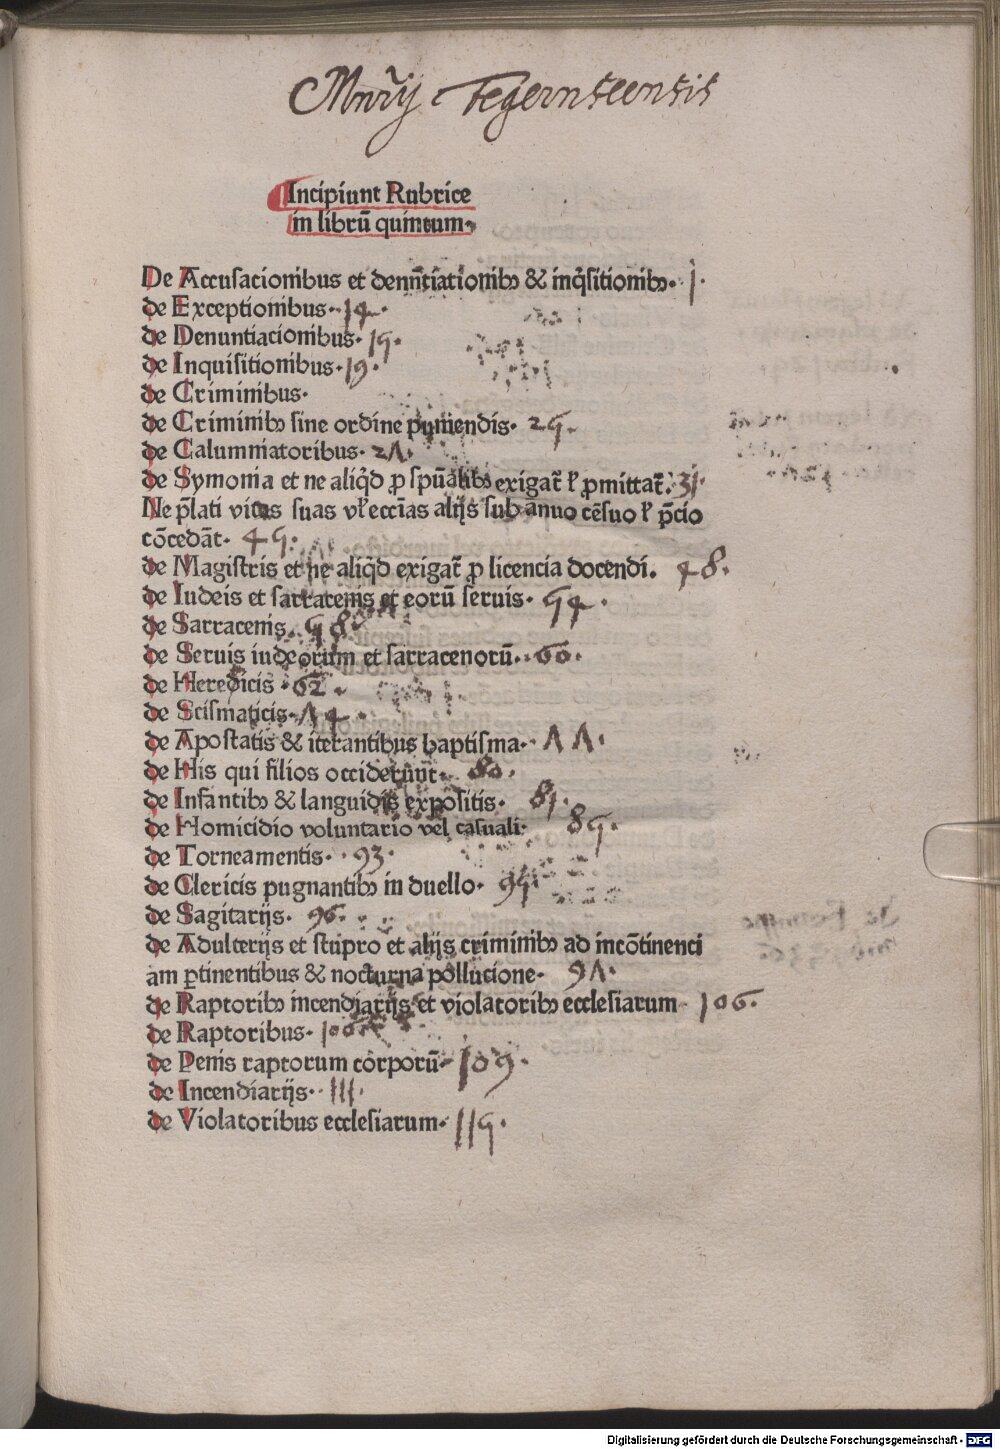 Mnrӯ Tegernseensis
Incipiunt Rubrice
in librū quintum.
De Accusacionibus et denūtiationibꝫ & inq̇sitionibꝫ. 1.
de Exceptionibus. 14.
de Denuntiacionibus. 15.
de Inquisitionibus. 19.
de Criminibus.
de Criminibꝫ sine ordine puniendis. 25.
de Calumniatoribus. 27.
de Symonia et ne aliq̇d ꝓ spūalibꝫ exigat᷑ ł ꝓmittat᷑. 31.
Ne p̄lati vices suas vł ecc̄ias alijs sub annuo cēsuo ł p̄cio
cōcedāt. 45.
de Magistris et ne aliq̇d exigat᷑ ꝓ licencia docendi. 48.
de Iudeis et sarracenis et eorū seruis. 54.
de Sarracenis. 58.
de Seruis iudeorum et sarracenorū. 60.
de Hereticis. 62.
de Scismaticis. 74.
de Apostatis & iterantibus baptisma. 77.
de His qui filios occiderunt. 80.
de Infantibꝫ & languidis expositis. 81.
de Homicidio voluntario vel casuali. 85.
de Torneamentis. 93.
de Clericis pugnantibꝫ in duello. 95.
de Sagitarijs. 96.
de Adulterijs et stupro et alijs criminibꝫ ad incōtinenci
am ꝑtinentibus & nocturna pollucione. 97.
de Raptoribꝫ incendiarijs et violatoribꝫ ecclesiarum 106.
de Raptoribus. 106.
de Penis raptorum corporū. 109.
de Incendiarijs. 111.
de Violatoribus ecclesiarum. 115.
Digitalisierung gefördert durch die Deutsche Forschungsgemeinschaft - DFG